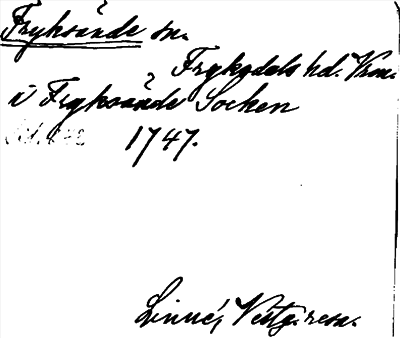 Fryksände sn.
Fryksdals hd. Vrm.
i Fryksände Socken
1747.
Linné, Vestg. resa.